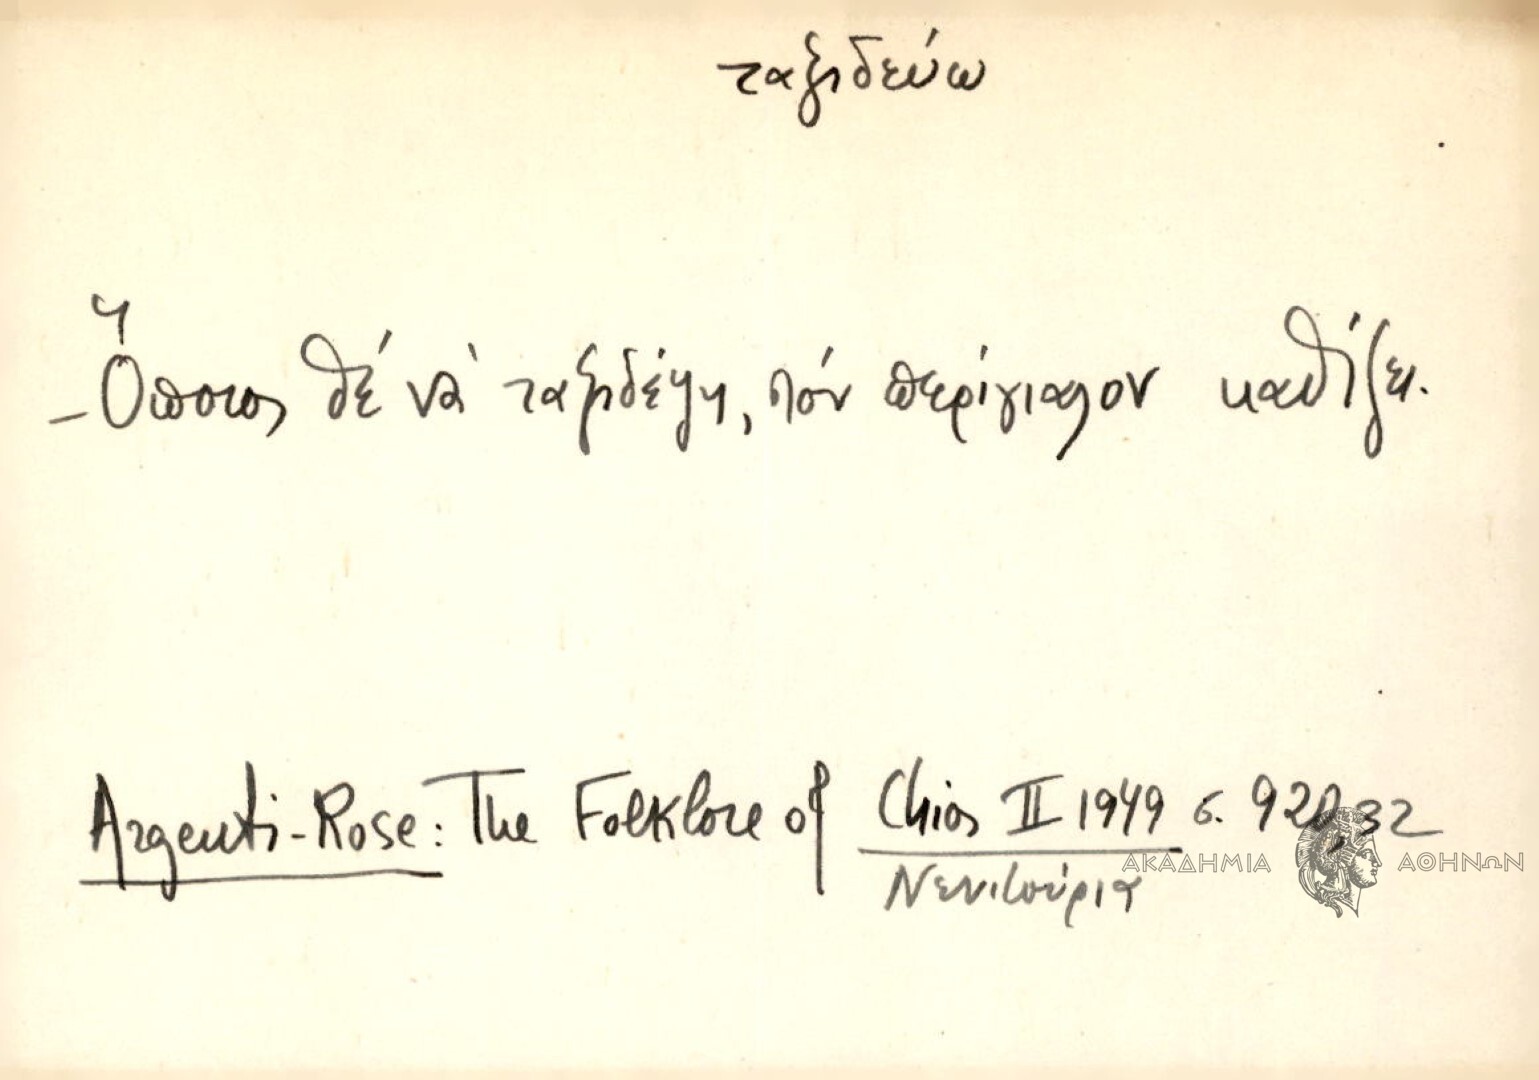 ταξιδεύω
- Ὅποιος θέ νὰ ταξιδέψη, πόν περίγιαλον καθίζει.
Argenti-Rose: The Folklore of Chios II 1949 σ. 920,32
Νενιτούρια
ΑΚΑΔΗΜΙΑ ΑΘΗΝΩΝ